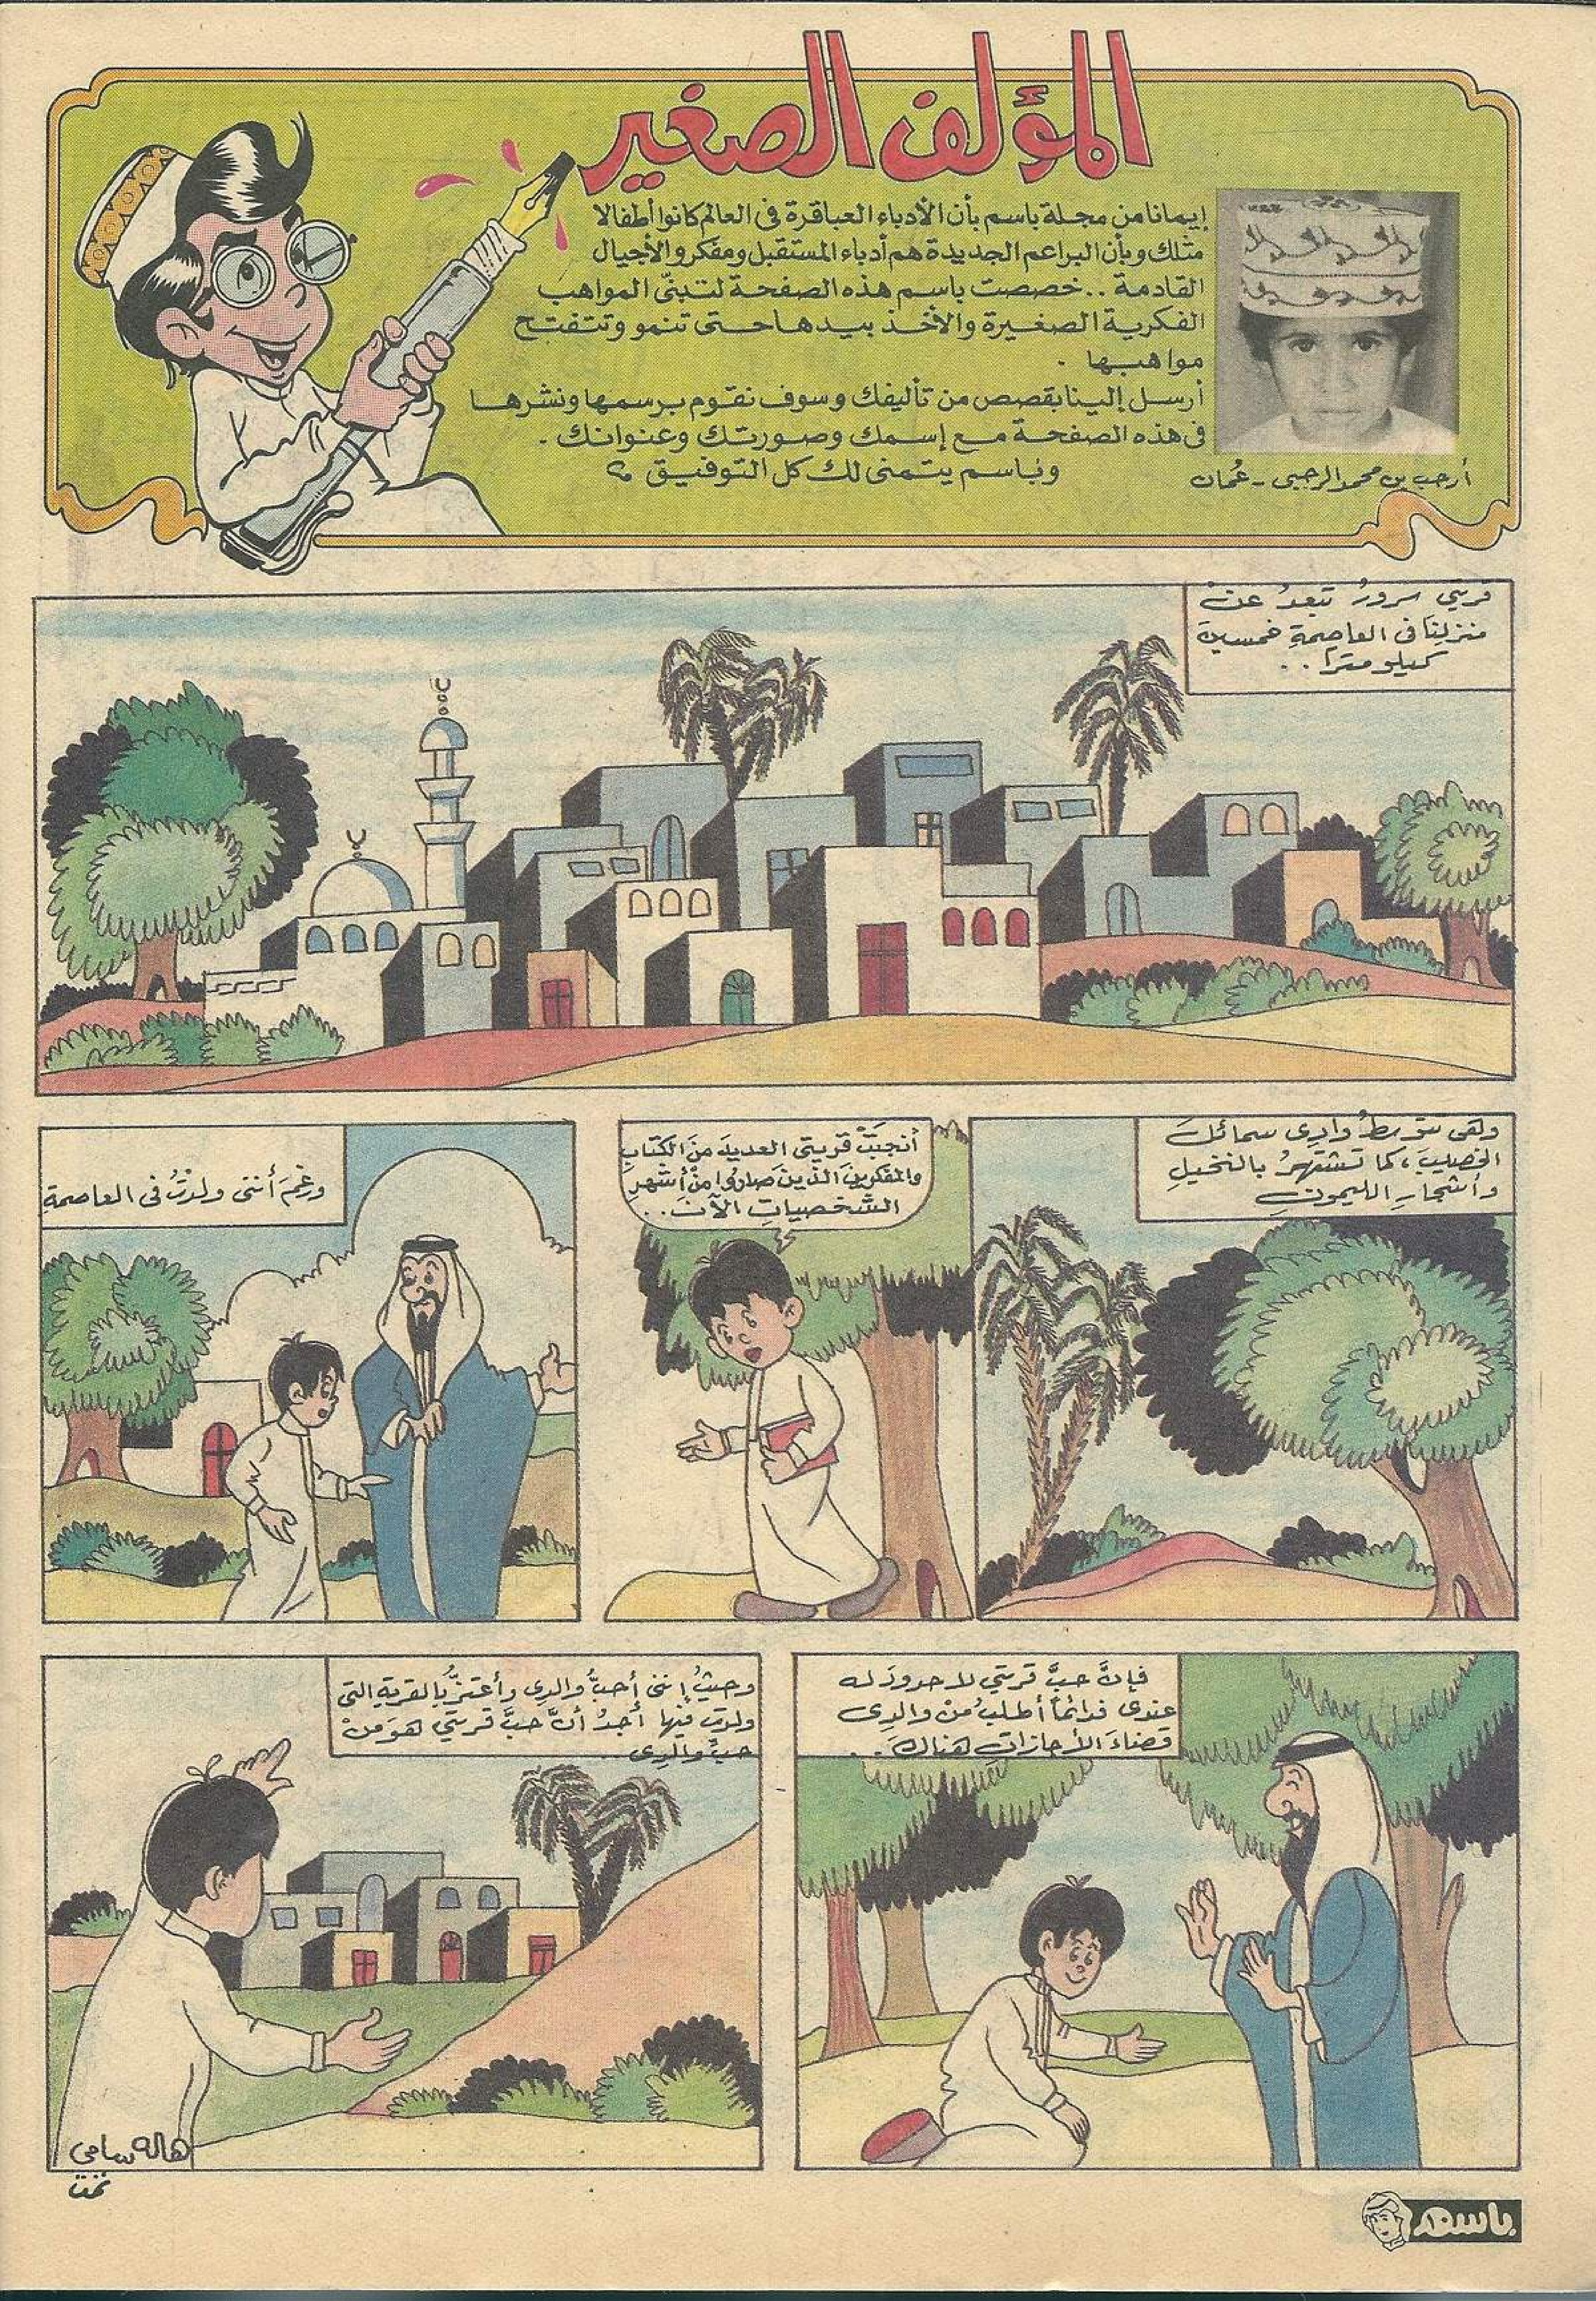 المؤلف الصغير
إيمانا من مجلة باسم بأن الأدباء العباقرة في العالم كانوا أطفالا
مثلك وبأن البراعم الجديدة هم أدباء المستقبل ومفكرو الأجيال
القادمة .. خصصت باسم هذه الصفحة لتبنّي المواهب
الفكرية الصغيرة والأخذ بيدها حتى تنمو وتتفتح
مواهبها .
أرسل إلينا بقصص من تأليفك وسوف نقوم برسمها ونشرها
في هذه الصفحة مع إسمك وصورتك وعنوانك .
وباسم يتمنى لك كل التوفيق
أرحب بن محمد الرحبي - عُمان
قريتي سرورُ تبعدُ عن
منزلِنا في العاصمةِ خمسين
كيلومترًا ..
وهي تتوسطُ وادي سمائل
الخصيب، كما تشتهرُ بالنخيلِ
وأشجارِ الليمونِ
أنجبَتْ قريتي العديدَ منَ الكتّابِ
والمفكرينَ الذينَ صاروا منْ أشهرِ
الشخصياتِ الآنَ ..
ورغمَ أنني ولدتُ في العاصمةِ
فإنَّ حبَّ قريتي لا حدودَ له
عندي فدائماً أطلبُ منْ والدي
قضاءَ الأجازاتِ هناكَ ..
وحيثُ إنني أحبُّ والدي وأعتزُّ بالقريةِ التي
ولدَ فيها أجدُ أنَّ حبَّ قريتي هوَ منْ
حبِّ والدي ..
هالة سامي
تمت
باسم